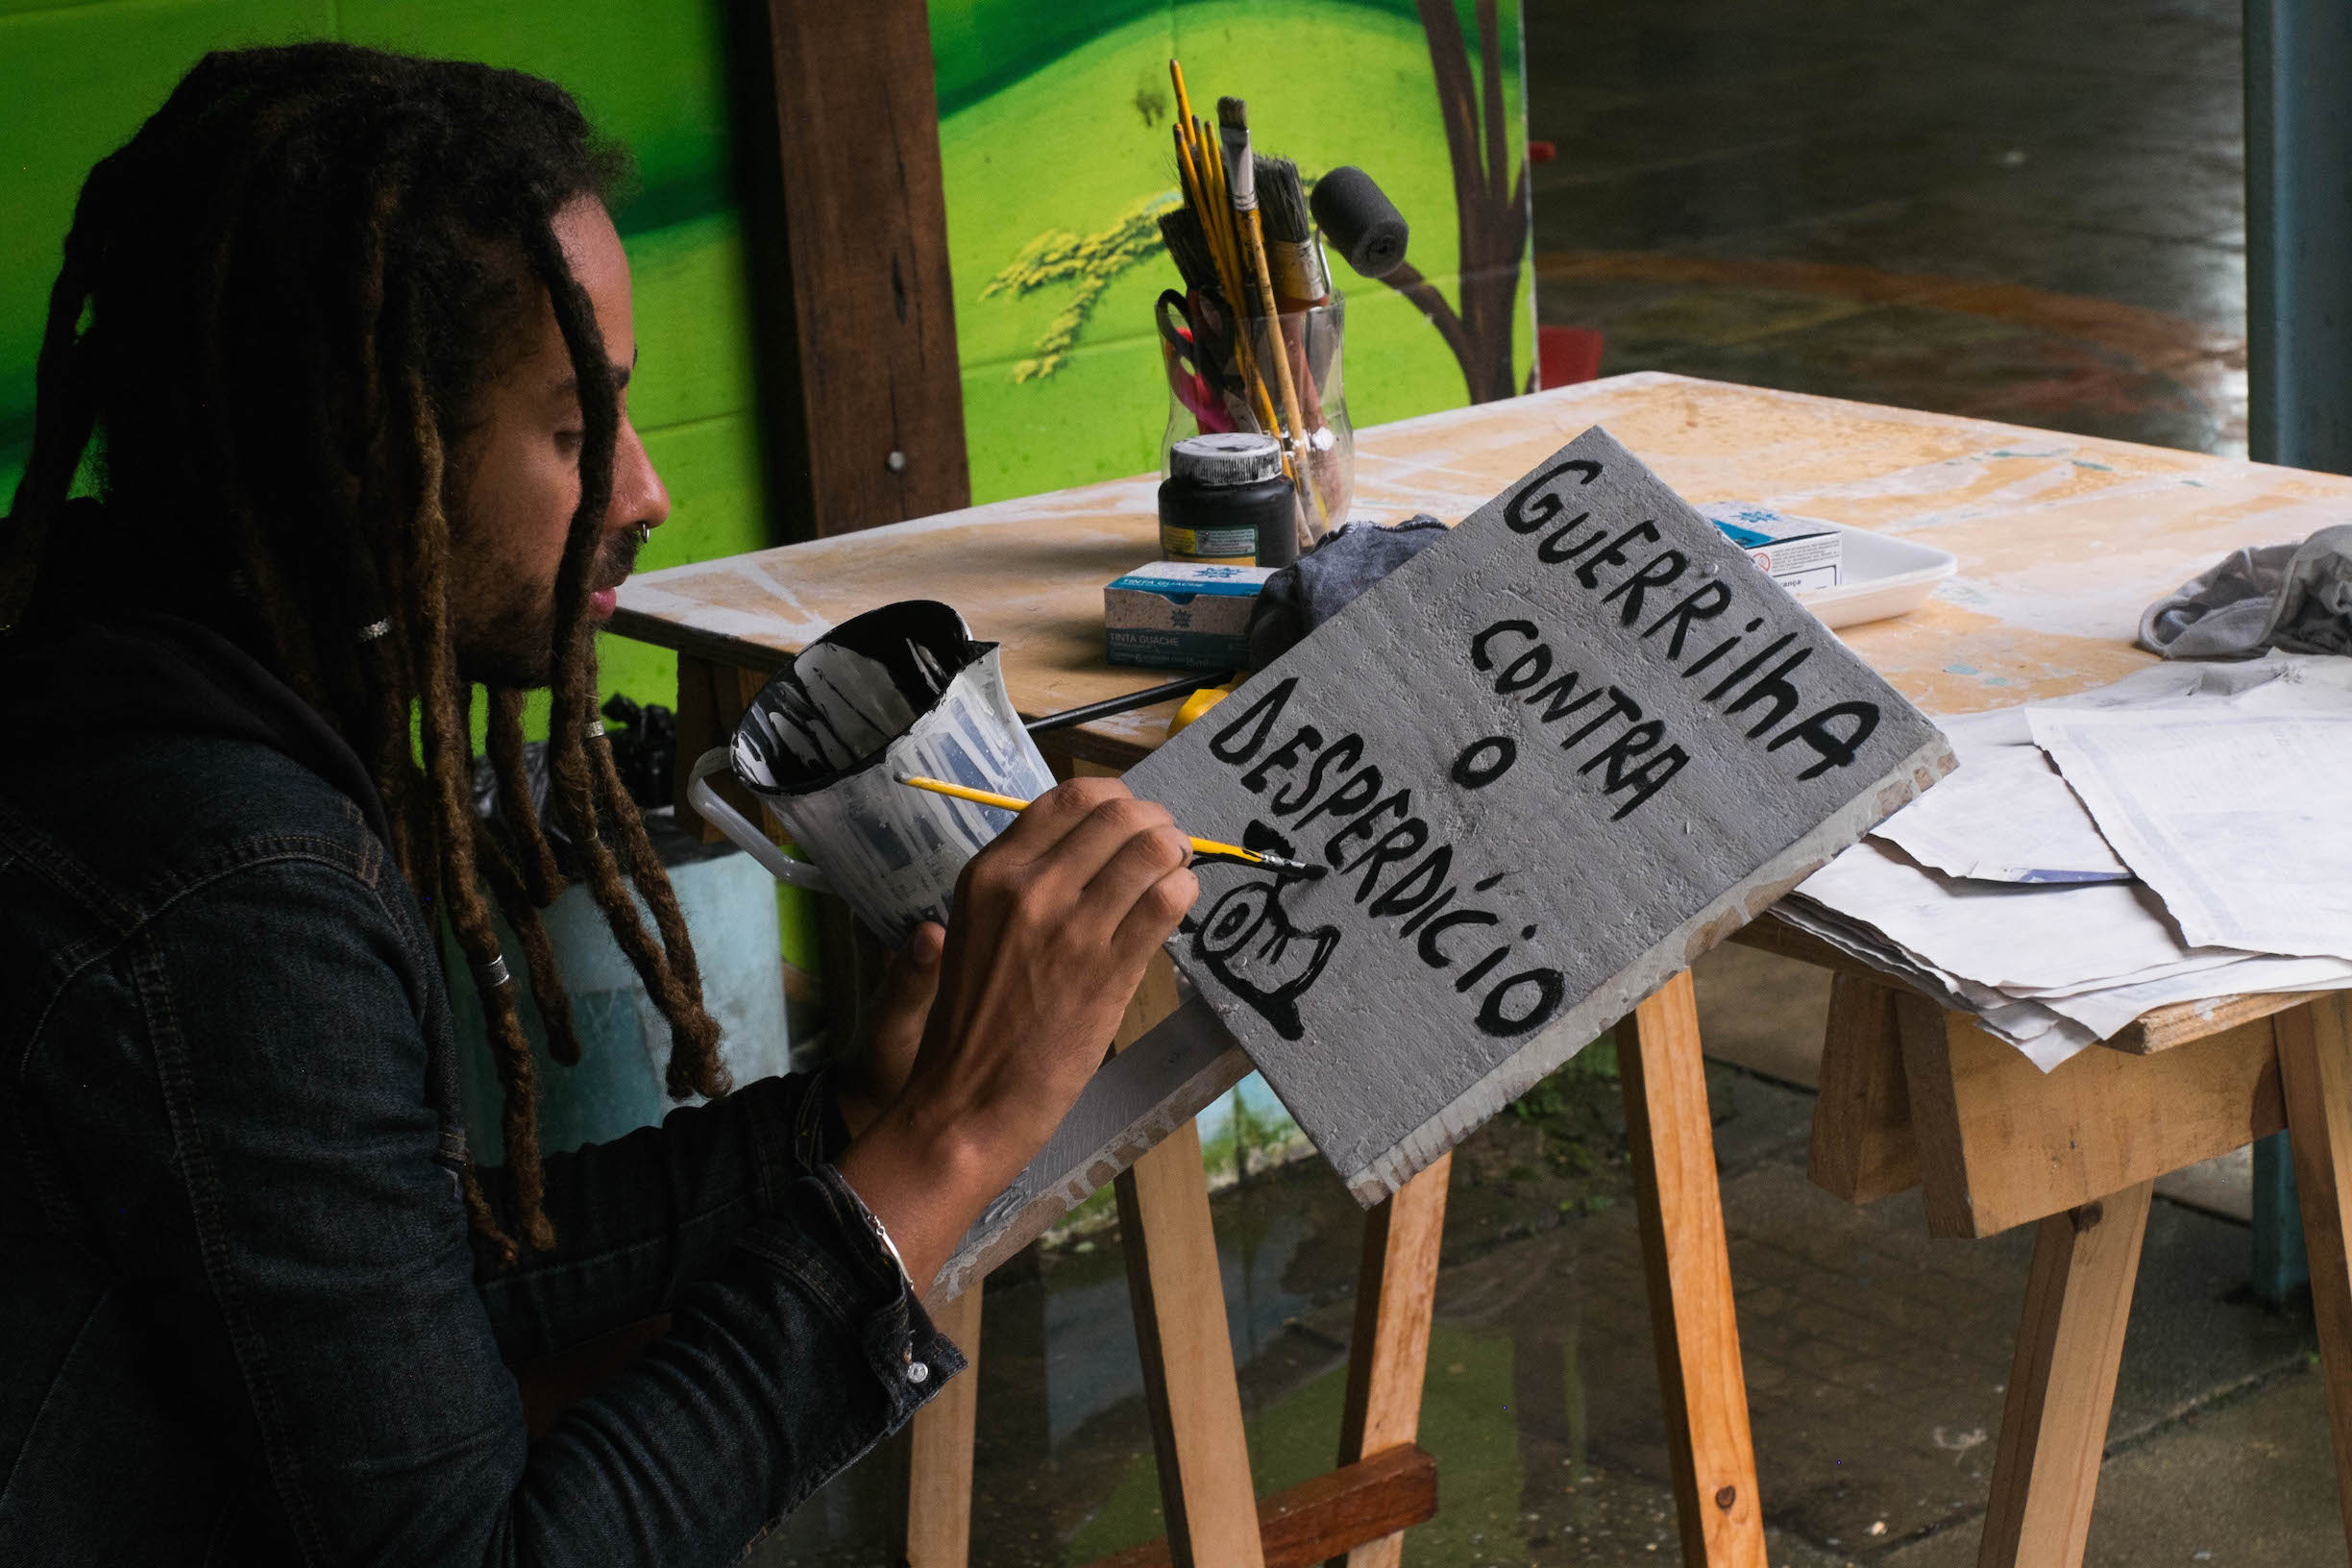 GUERRilhA
CONTRA
O
DESPERDíCiO
TINTA GUACHE
TINTA GUACHE
15ml